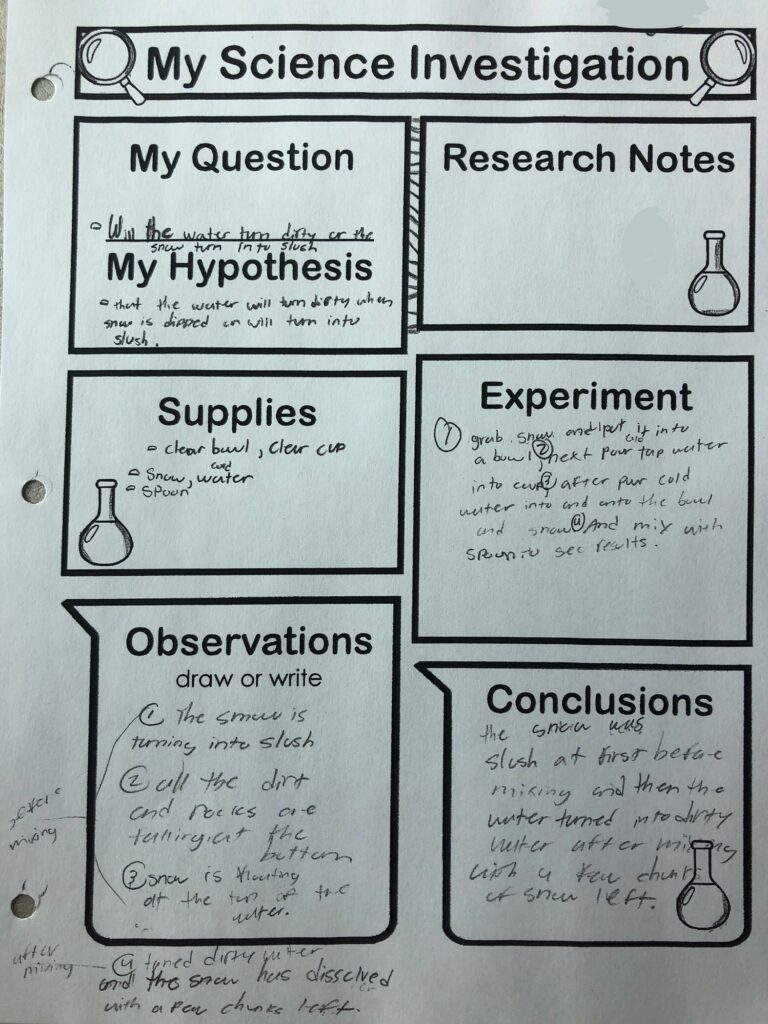 My Science Investigation
My Question
Will the water turn dirty or the
snow turn into slush
My Hypothesis
that the water will turn dirty when
snow is dipped an will turn into
slush.
Research Notes
Supplies
clear bowl, clear cup
cold
Snow, water
Spoon
Experiment
① grab snow and put it into
cold
a bowl, ② next pour tap water
into cup ③ after pur cold
water into and onto the bowl
and snow ④ And mix with
spoon to see results.
Observations
draw or write
① The snow is
turning into slush
② all the dirt
and rocks are
the
bottom
③ snow is floating
at the top of the
water.
before
mixing
after
mixing
④ turned dirty water
and the snow has dissolved
with a few chunks left.
Conclusions
the snow was
slush at first before
mixing and then the
water turned into dirty
water after mixing
with a few chunks
of snow left.